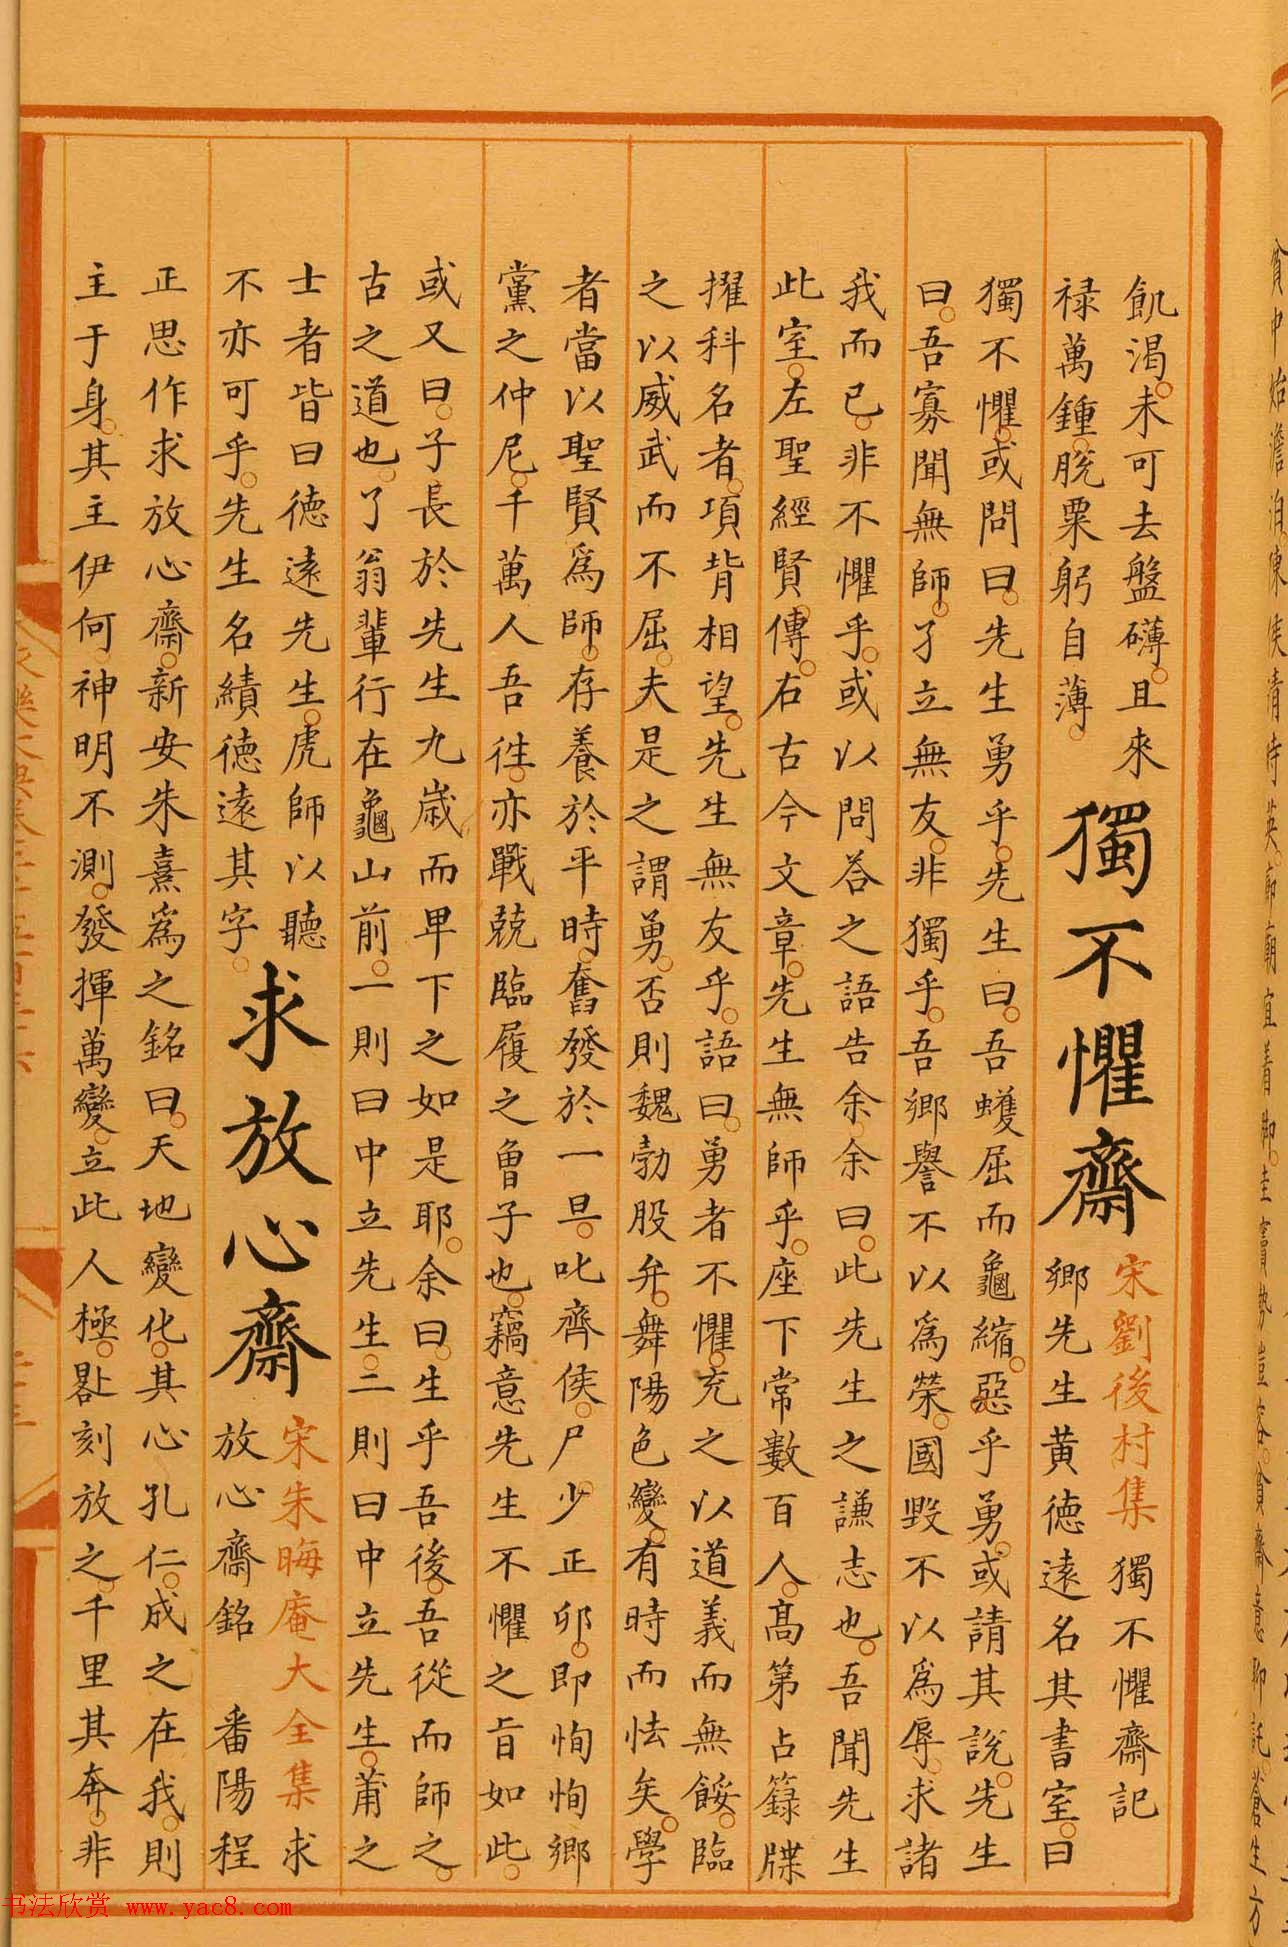 飢渴。未可去盤礴。且來
祿萬鍾。脫粟躬自薄。
獨不懼齋
宋劉後村集 獨不懼齋記
鄉先生黃德遠名其書室。曰
獨不懼。或問曰。先生勇乎。先生曰。吾蠖屈而龜縮。惡乎勇。或請其說。先生
曰。吾寡聞無師。孑立無友。非獨乎。吾鄉譽不以爲榮。國毀不以爲辱。求諸
我而已。非不懼乎。或以問荅之語告余。余曰。此先生之謙志也。吾聞先生
此室。左聖經賢傳。右古今文章。先生無師乎。座下常數百人。高第占籙牒
擢科名者。項背相望。先生無友乎。語曰。勇者不懼。充之以道義而無餒。臨
之以威武而不屈。夫是之謂勇。否則魏勃股弁。舞陽色變。有時而怯矣。學
者當以聖賢爲師。存養於平時。奮發於一旦。叱齊侯。尸少正卯。即恂恂鄉
黨之仲尼。千萬人吾徃。亦戰兢臨履之曾子也。竊意先生不懼之旨如此。
或又曰。子長於先生九歲而早下之如是耶。余曰。生乎吾後。吾從而師之。
古之道也。了翁輩行在龜山前。一則曰中立先生。二則曰中立先生。莆之
士者皆曰德遠先生。虎師以聽
不亦可乎。先生名績德遠其字。
求放心齋
宋朱晦庵大全集 求
放心齋銘 番陽程
正思作求放心齋。新安朱熹爲之銘曰。天地變化。其心孔仁。成之在我。則
主于身。其主伊何。神明不測。發揮萬變。立此人極。晷刻放之。千里其奔。非
书法欣赏 www.yac8.com